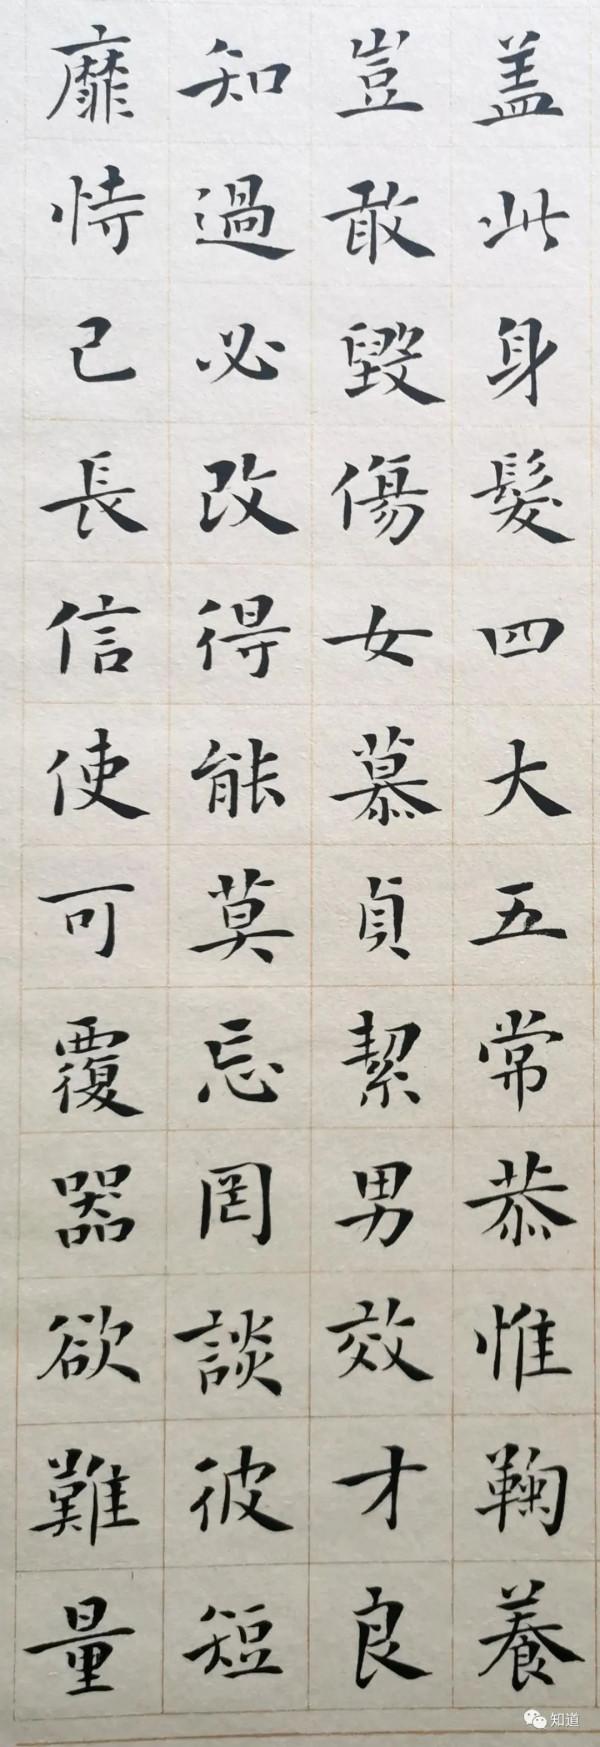 盖此身髮四大五常恭惟鞠養
豈敢毀傷女慕貞絜男效才良
知過必改得能莫忘罔談彼短
靡恃己長信使可覆器欲難量
知道